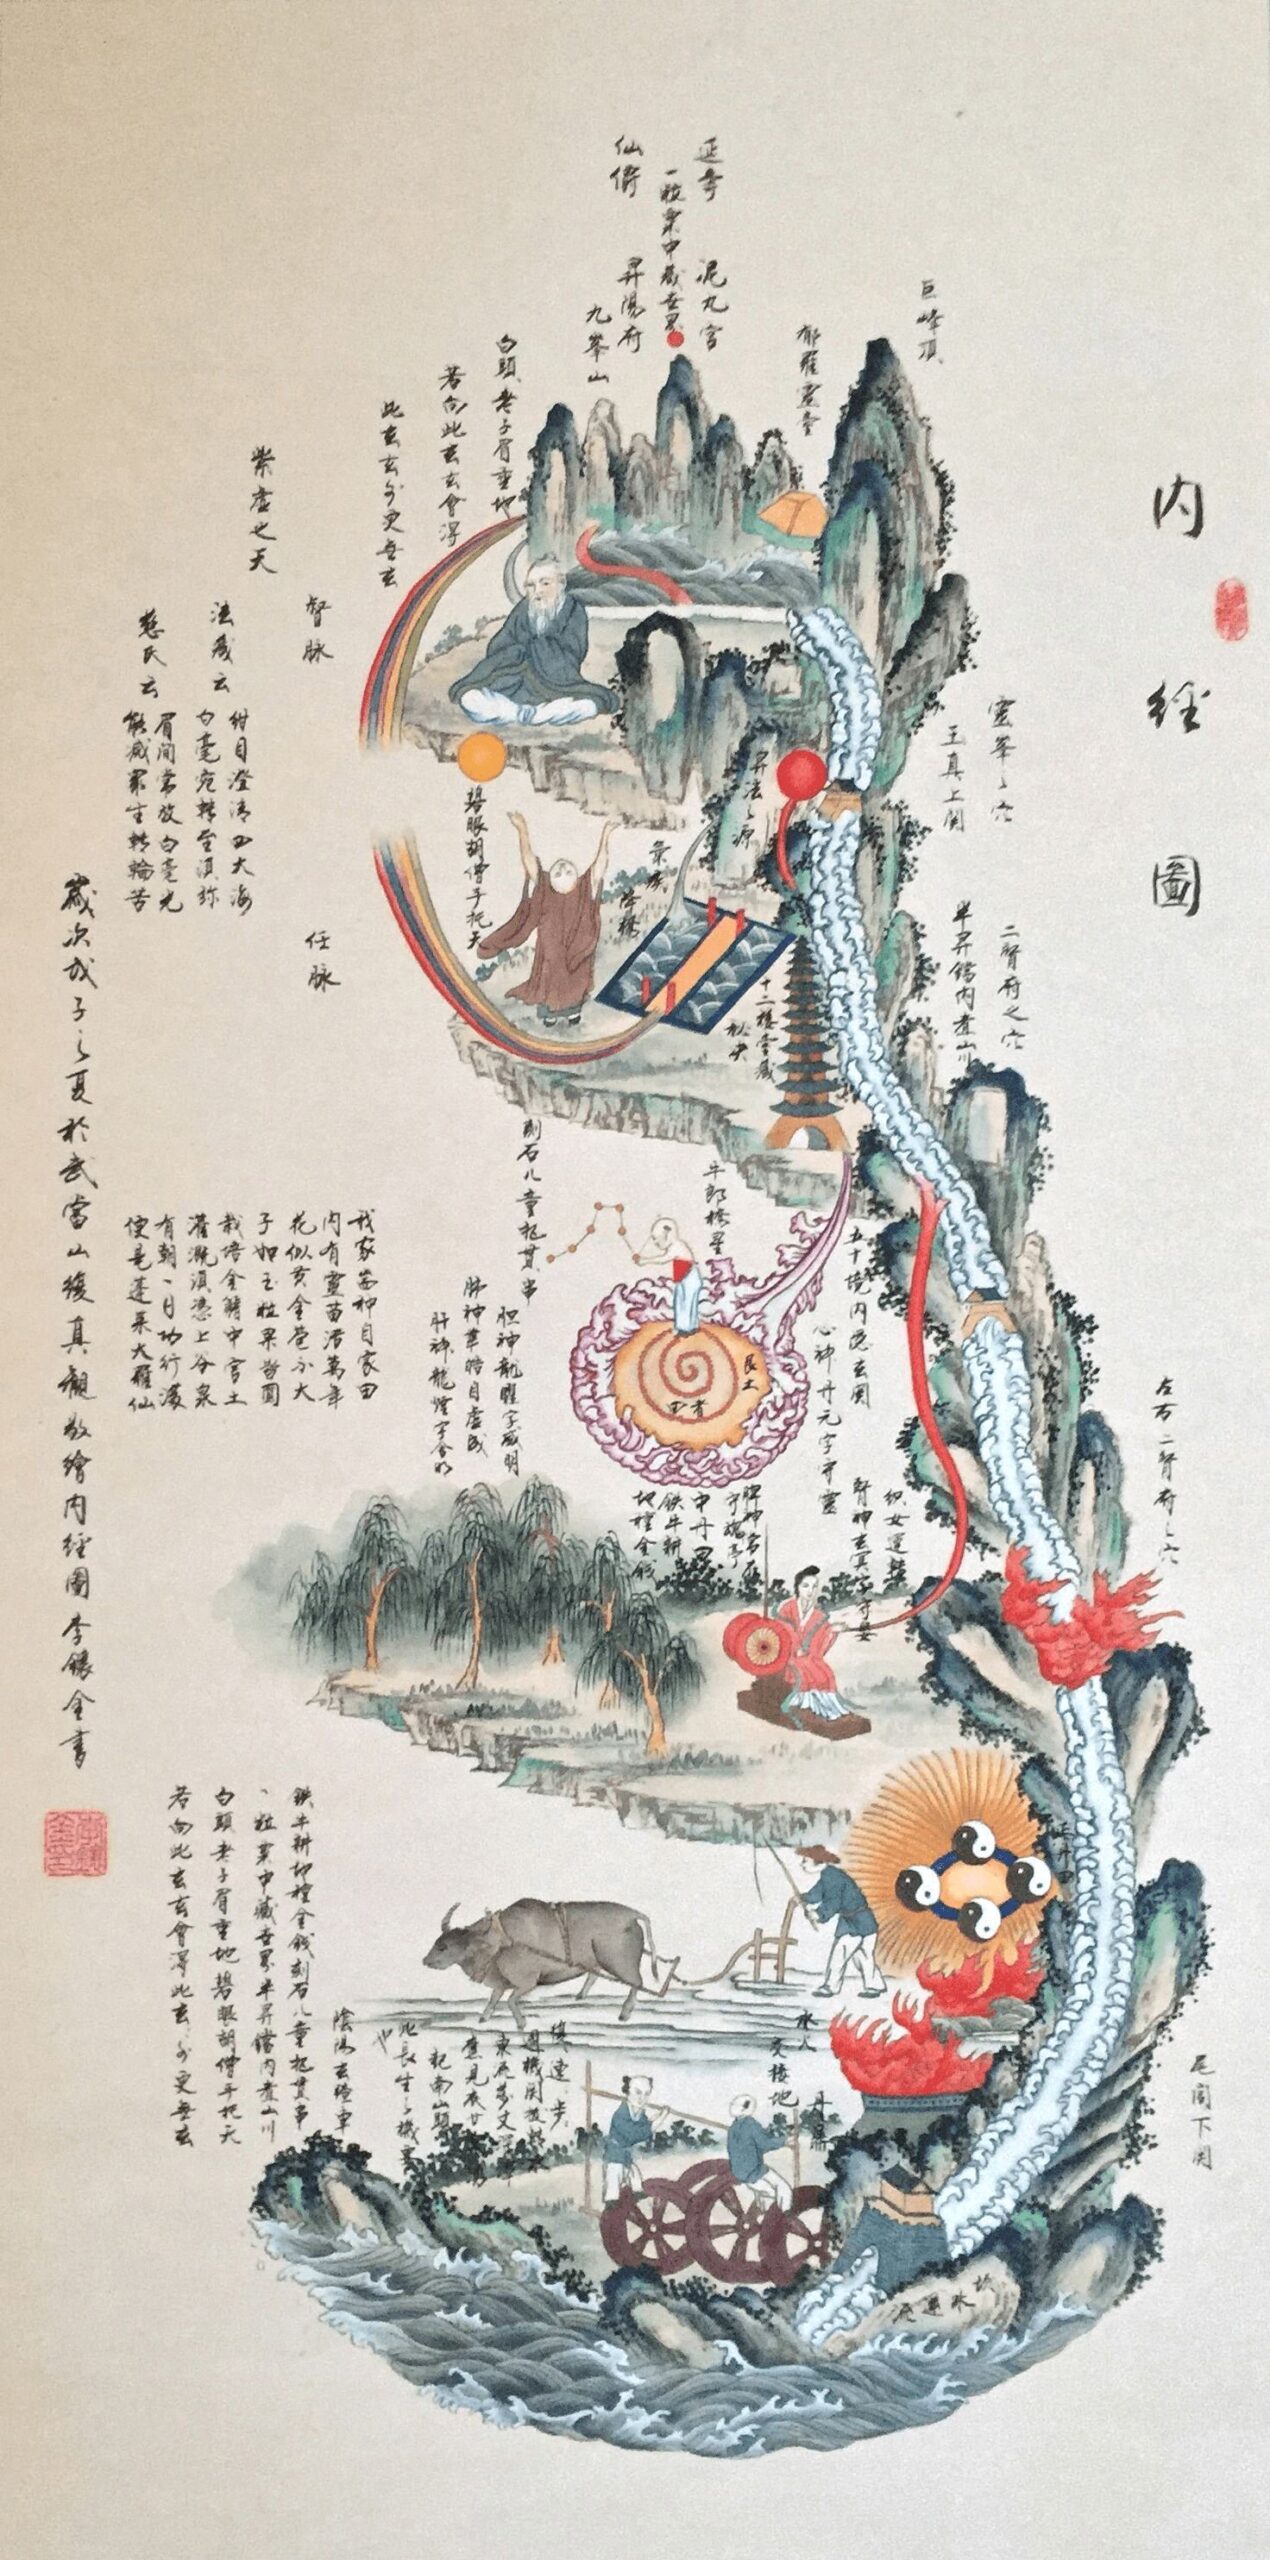 内經圖
巨峰頂
郁羅靈臺
延壽
泥丸宮
一粒粟中藏世界
仙僑
昇陽府
九峯山
白頭老子眉垂地
若向此玄玄會得
此玄玄外更無玄
紫虛之天
督脉
法藏云
紺目澄清四大海
白毫宛轉
慈氏云
眉間常放白毫光
能滅眾生轉輪苦
任脉
靈峯之穴
王真上関
昇法之源
碧眼胡僧手托天
降橋
二腎府之穴
半昇鐺内煮山川
十二樓臺藏
秘史
刻石兒童把貫串
牛郎橋星
五十境内隱玄関
心神丹元字守靈
胆神龍曜字威明
肺神華皓自虛成
肝神龍煙字含明
我家耑種自家田
内有靈苗活萬年
花似黃金苞不大
子如玉粒果皆圓
栽培全賴中宮土
灌溉須憑上谷泉
有朝一日功行滿
便是蓬萊大羅仙
艮土
左右二腎府之穴
織女運轉
腎神玄冥字守嬰
中丹田
鉄牛耕
地種金錢
歲次戊子之夏於武當山復真觀敬繪内經圖李銀全書
正丹田
鉄牛耕地種金錢刻石兒童把貫串
一粒粟中藏世界半昇鐺内煮山川
白頭老子眉垂地碧眼胡僧手托天
若向此玄玄會得此玄玄外更無玄
水人
交接地
丹鼎
此長生之機
也
陰陽玄踏車
尾閭下関
坎水逆流